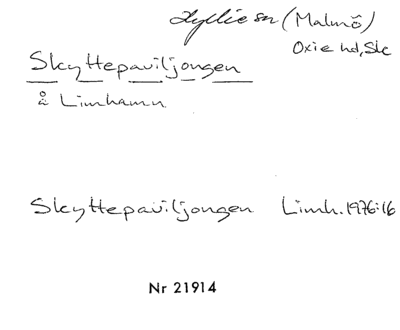 Hyllie sn (Malmö)
Oxie hd, Sk
Skyttepaviljongen
å Limhamn
Skyttepaviljongen Limh. 1976:16
Nr 21914